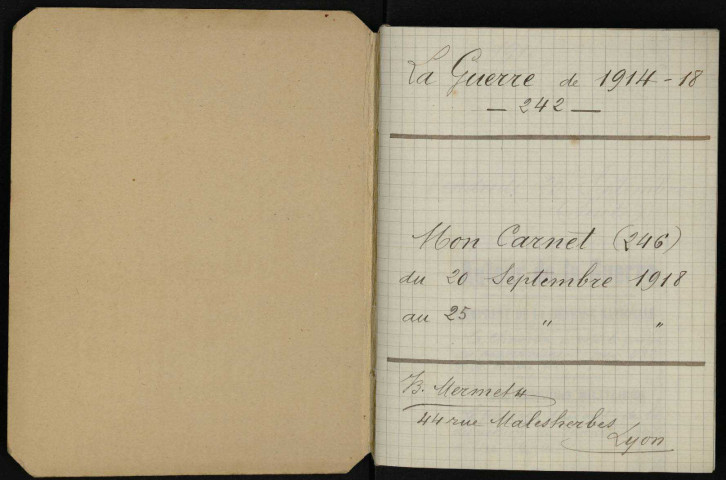 La Guerre de 1914-18
— 242 —
Mon Carnet (246)
du 20 Septembre 1918
au 25 " "
B. Mermet
44 rue Malesherbes
Lyon